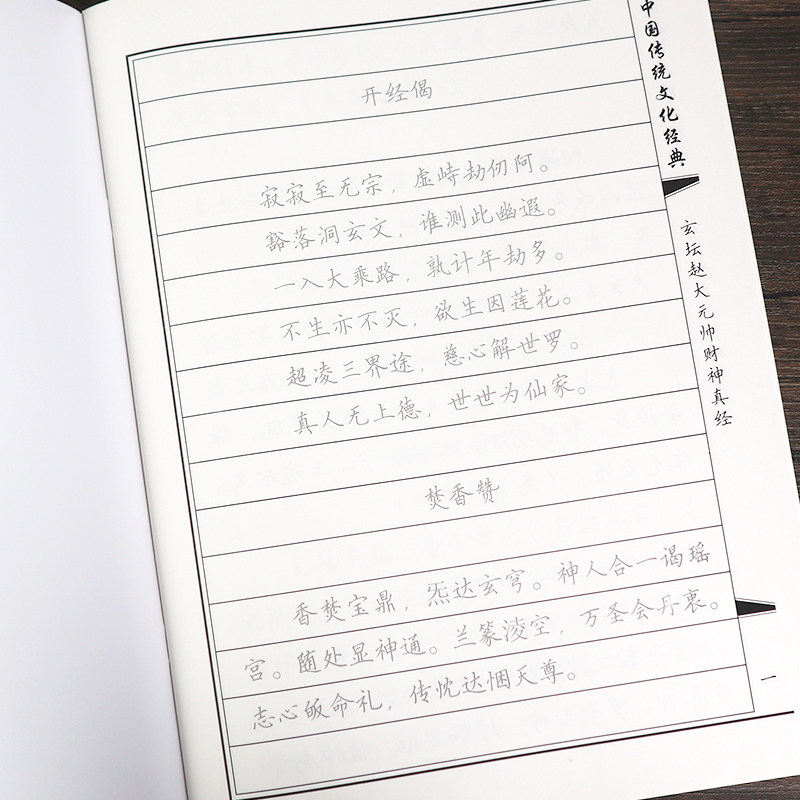 开经偈
寂寂至无宗，虚峙劫仞阿。
豁落洞玄文，谁测此幽遐。
一入大乘路，孰计年劫多。
不生亦不灭，欲生因莲花。
超凌三界途，慈心解世罗。
真人无上德，世世为仙家。
焚香赞
香焚宝鼎，炁达玄穹。神人合一谒瑶
宫。随处显神通。兰篆淩空，万圣会丹衷。
志心皈命礼，传忱达悃天尊。
中国传统文化经典
玄坛赵大元帅财神真经
一